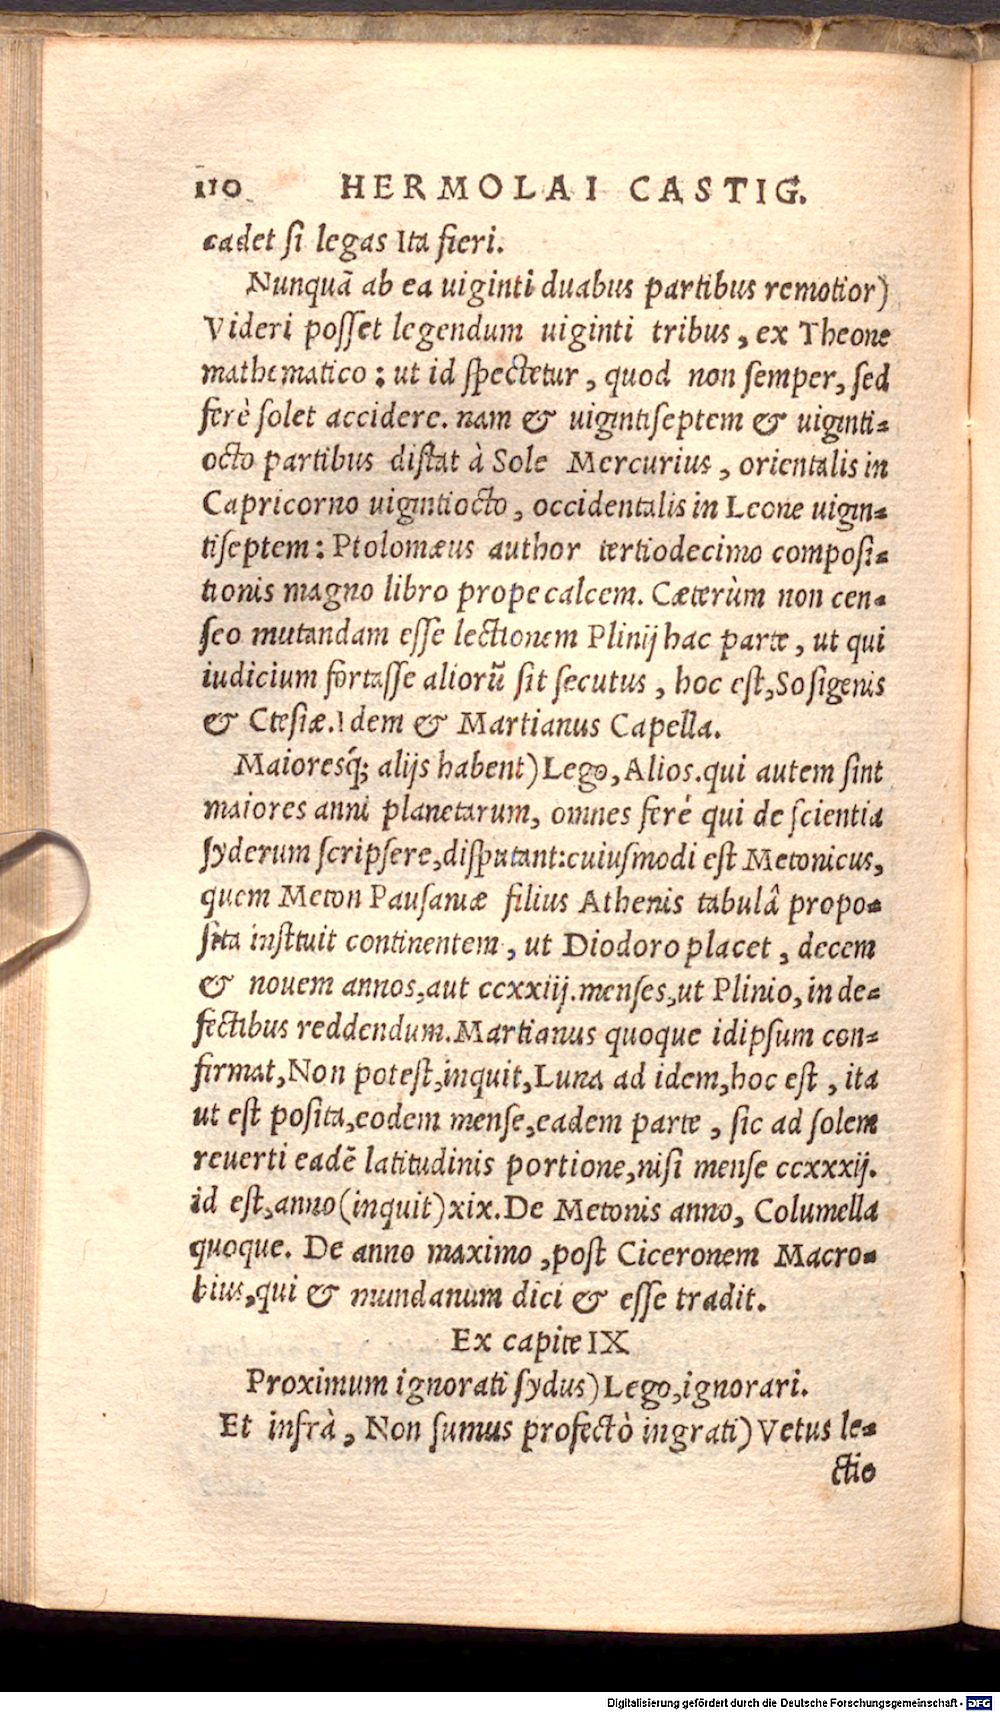 110 HERMOLAI CASTIG.
cadet si legas Ita fieri.
Nunquã ab ea uiginti duabus partibus remotior)
Videri posset legendum uiginti tribus, ex Theone
mathematico: ut id spectetur, quod non semper, sed
ferè solet accidere. nam & uigintiseptem & uiginti-
octo partibus distat à Sole Mercurius, orientalis in
Capricorno uigintiocto, occidentalis in Leone uigin-
tiseptem: Ptolomæus author tertiodecimo composi-
tionis magno libro prope calcem. Cæterùm non cen-
seo mutandam esse lectionem Plinij hac parte, ut qui
iudicium fortasse aliorũ sit secutus, hoc est, Sosigenis
& Ctesiæ. Idem & Martianus Capella.
Maioresq́; alijs habent) Lego, Alios. qui autem sint
maiores anni planetarum, omnes feré qui de scientia
syderum scripsere, disputant: cuiusmodi est Metonicus,
quem Meton Pausaniæ filius Athenis tabulâ propo-
sita instituit continentem, ut Diodoro placet, decem
& nouem annos, aut ccxxiij. menses, ut Plinio, in de-
fectibus reddendum. Martianus quoque idipsum con-
firmat, Non potest, inquit, Luna ad idem, hoc est, ita
ut est posita, eodem mense, eadem parte, sic ad solem
reuerti eadẽ latitudinis portione, nisi mense ccxxxij.
id est, anno (inquit) xix. De Metonis anno, Columella
quoque. De anno maximo, post Ciceronem Macro-
bius, qui & mundanum dici & esse tradit.
Ex capite IX
Proximum ignorati sydus) Lego, ignorari.
Et infrà, Non sumus profectò ingrati) Vetus le-
ctio
Digitalisierung gefördert durch die Deutsche Forschungsgemeinschaft - DFG